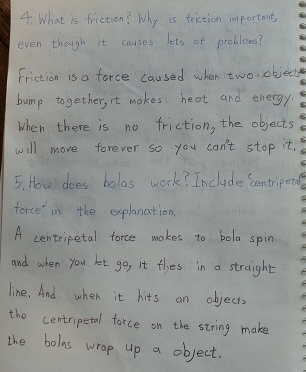 4. What is friction? Why is friction important,
even though it causes lots of problems?
Friction is a force caused when two objects
bump together, it makes heat and energy.
When there is no friction, the objects
will move forever so you can't stop it.
5. How does bolas work? Include "centripetal
force" in the explanation.
A centripetal force makes to bola spin
and when you let go, it flies in a straight
line. And when it hits an objects
the centripetal force on the string make
the bolas wrap up a object.